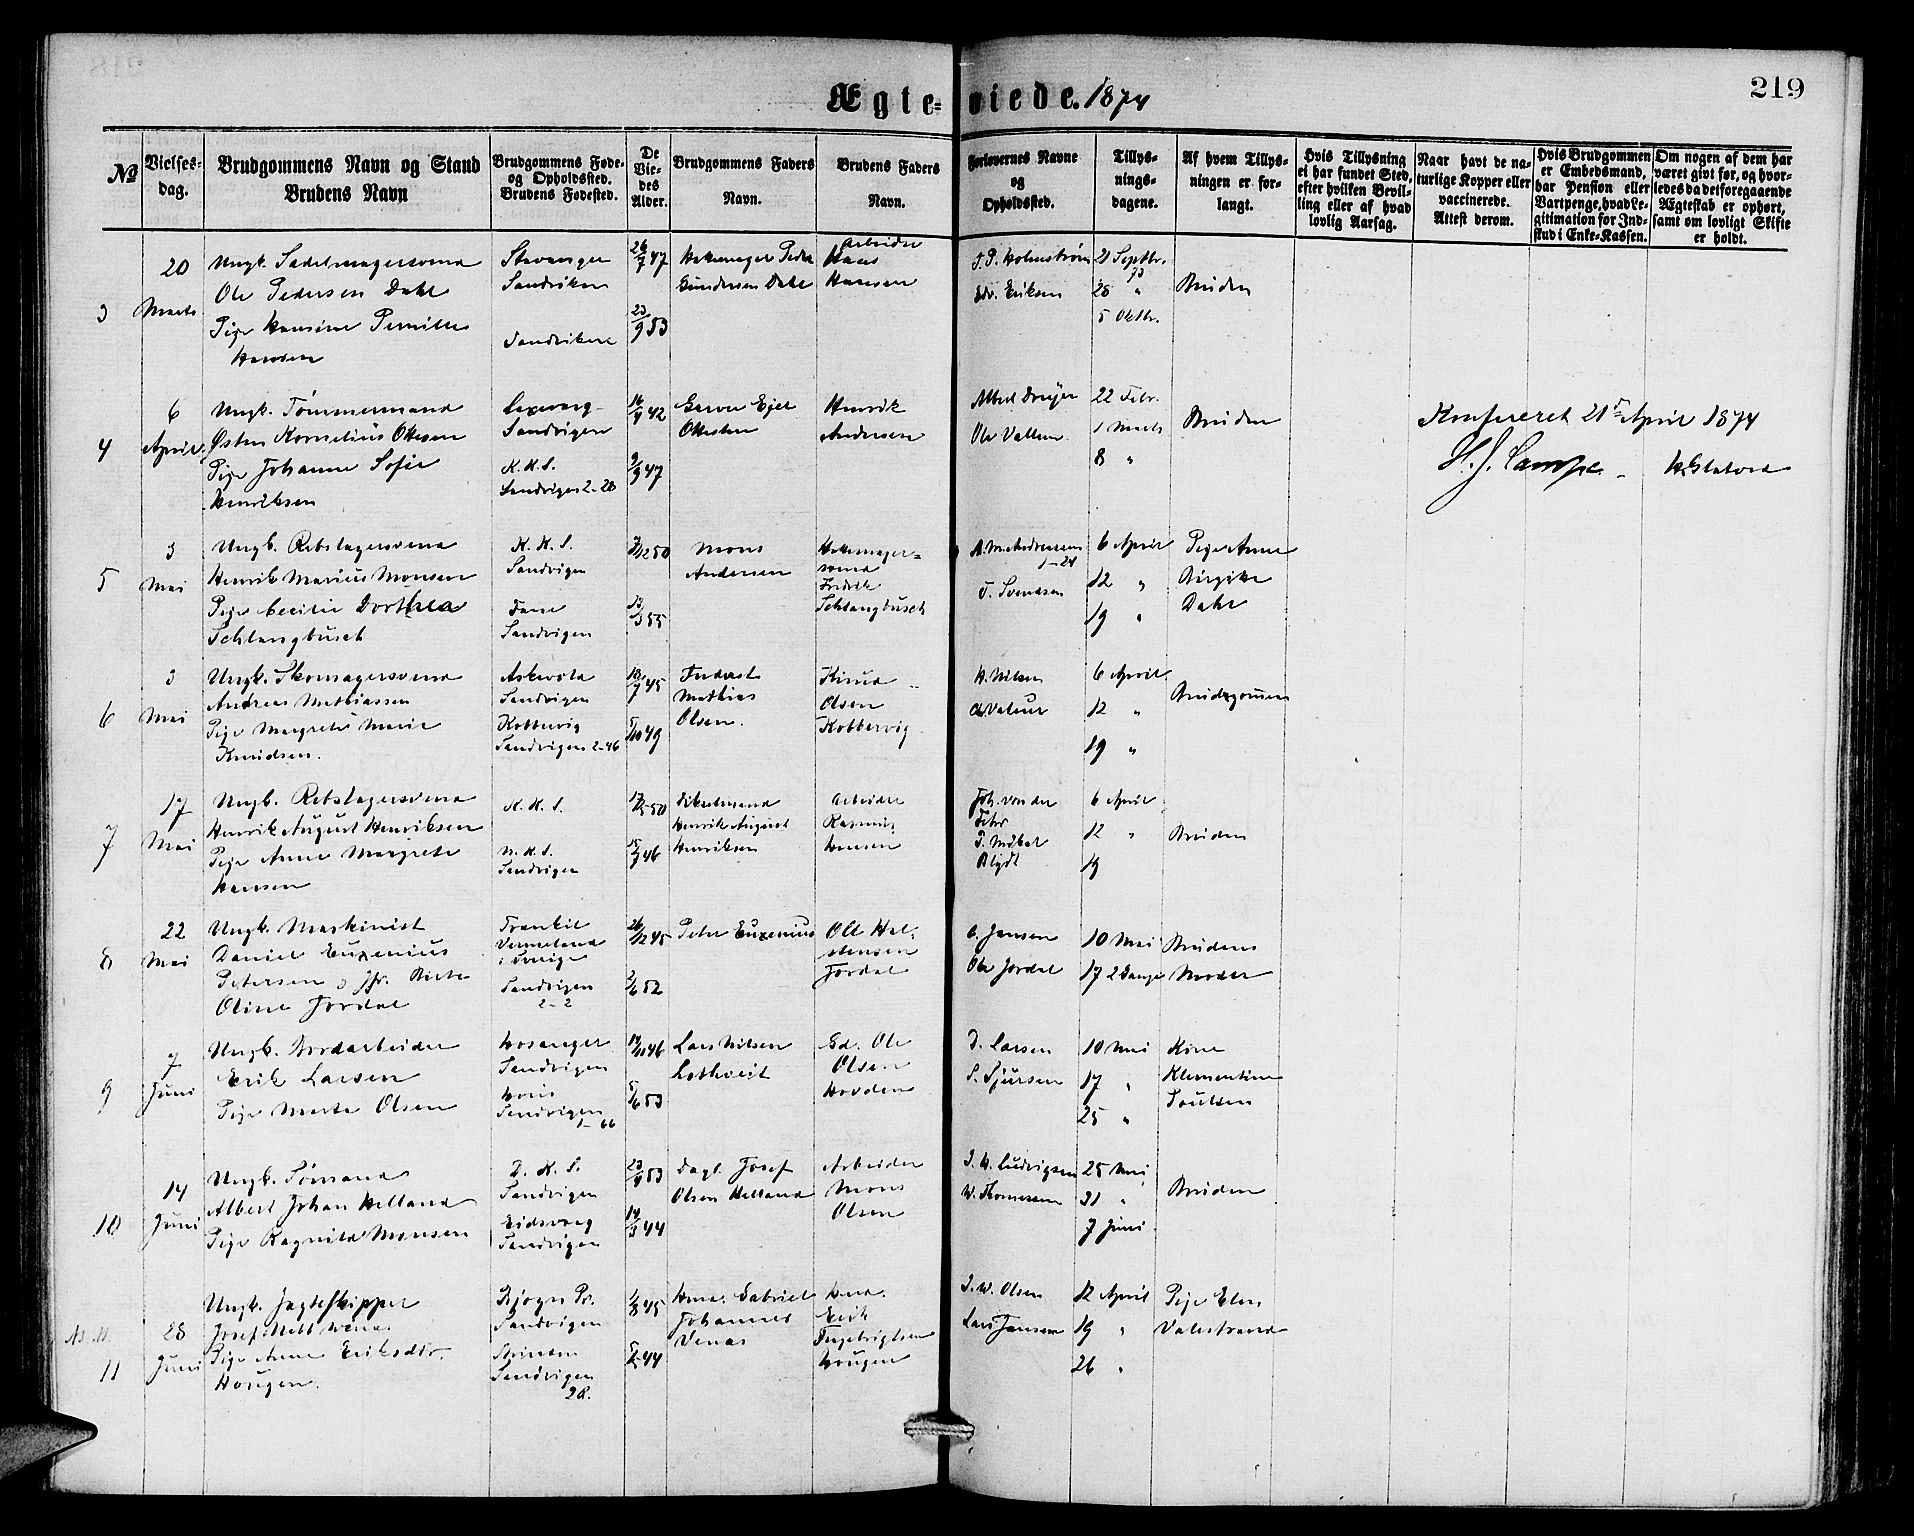 219
Ægteviede. 1874
№
Vielses-
dag.
Brudgommens Navn og Stand
Brudens Navn
Brudgommens Føde-
og Opholdssted.
Brudens Fødested.
De
Vie-
des
Alder.
Brudgommens Faders
Navn.
Brudens Faders
Navn.
Forlovernes Navne
og
Opholdssted.
Tillys-
nings-
dagene.
Af hvem Tillys-
ningen er for-
langt.
Hvis Tillysning
ei har fundet Sted,
efter hvilken Bevil-
ling eller af hvad
lovlig Aarsag.
Naar havt de na-
turlige Kopper eller
vaccinerede.
Attest derom.
Hvis Brudgommen
er Embedsmand,
har Pension eller
Vartpenge, hvad Le-
gitimation for Ind-
skud i Enke-Kassen.
Om nogen af dem har
været givt før, og hvor-
ledes da det foregaaende
Ægteskab er ophørt,
samt om lovligt Skifte
er holdt.
3
20
Marts
Ungk. Sadelmagersvend
Ole Pedersen Dahl
Pige Hansine Pernille
Hansen
Stavanger
Sandviken
Sandviken
26/7 47
23/9 53
Peder
Gundersen Dahl
Arbeider
Hans
Hansen
J. P. Holmstrøm
Edv. Eriksen
21 Septbr.
73
28 "
5 Oktbr.
Bruden
4
6
April
Ungk. Tømmermand
Østen Kornelius Ottesen
Pige Johanne Sofie
Henriksen
Laxevaag
Sandvigen
K. K. S.
Sandvigen 2-28
16/4 42
9/9 47
Ottesen
Henrik
Andersen
Albert Dreyer
Ole Vallem
22 Febr.
1 Marts
8 "
Bruden
Konfereret 21de April 1874
5
3
Mai
Ungk. Rebslagersvend
Henrik Marius Monsen
Pige Cecilie Dorthea
Schlangbusch
K. K. S.
Sandvigen
Fane
Sandvigen
3/12 50
13/3 55
Mons
Andersen
svend
Fredrik
Schlangbusch
A. M. Andreassen
1-24
J. Svendsen
6 April
12 "
19 "
Pige Anne
Birgitte
Dahl
6
3
Mai
Ungk. Skomagersvend
Andreas Mathiassen
Pige Margrete Marie
Knudsen.
Askevold
Sandvigen
Kobbervig
Sandvigen 2-46
18/7 45
5/10 49
Inderst
Mathias
Olsen.
Knud
Olsen
Kobbervig
A. Nilsen
6 April
12 "
19 "
Brudegommen
7
17
Mai
Ungk. Rebslagersvend
Henrik August Henriksen
Pige Anne Margrete
Hansen
K. K. S.
N. K. S.
Sandvigen
Henrik August
Henriksen
Arbeider
Rasmus
Hansen
Joh. von der
Fehr
P. Mikal
Blydt
6 April
12 "
19
Bruden
8
22
Mai
Ungk. Maskinist
Daniel Euxenius
Petersen og Jfr. Berte
Oline Jordal
Vermeland
i Sverige
Sandvigen
2-2
26/12 45
2/6 52
Peter Euxenius
Ole Hal-
stensen
Jordal
O. Jansen
Ole Jordal
10 Mai
17 2 Gange
Brudens
Moder
9
7
Juni
Ungk. Bordarbeider
Erik Larsen
Pige Marta Olsen
Hosanger
Sandvigen
Sandvigen
1-66
14/11 46
5/6 53
Lars Nilsen
Lothveit
Gd. Ole
Olsen
Hovden
D. Larsen
S. Sjursen
10 Mai
17 "
25 "
Kone
Klementine
Poulsen
10
14
Juni
Ungk. Sømand
Albert Johan Helland
Pige Ragnilda Monsen
D. K. S.
Sandvigen
Eidsvaag
Sandvigen
23/4 53
14/3 44
Dagl. Josef
Olsen Helland
Arbeider
Mons
Olsen
J. W. Ludvigsen
W. Thomessen
25 Mai
31 "
7 Juni
Bruden
11
28
Juni
Ungk. Jagteskipper
Pige Anne Eriksdtr.
Hougen.
Sandvigen
Sandvigen
28.
1/8 45
Gabriel
Johannes
Venas
Erik
Ingebrigtsen
Hougen
J. W. Olsen
Lars Jansen
12 April
19 "
26 "
Pige Elen
Valestrand